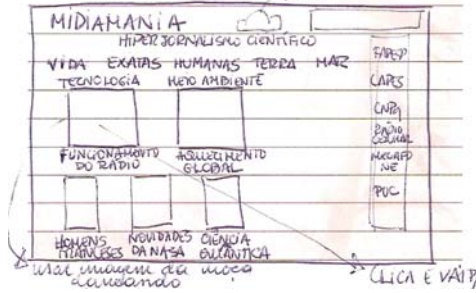 MIDIAMANIA
HIPERJORNALISMO CIENTÍFICO
VIDA EXATAS HUMANAS TERRA MAR
TECNOLOGIA MEIO AMBIENTE
FUNCIONAMENTO
DO RÁDIO
AQUECIMENTO
GLOBAL
HOMENS
NOVIDADES
DA NASA
CIÊNCIA
QUÂNTICA
FAPESP
CAPES
CNPq
RÁDIO
CELULAR
MEGAFO
NE
PUC
usar imagem da moça
dançando
CLICA E VAI P